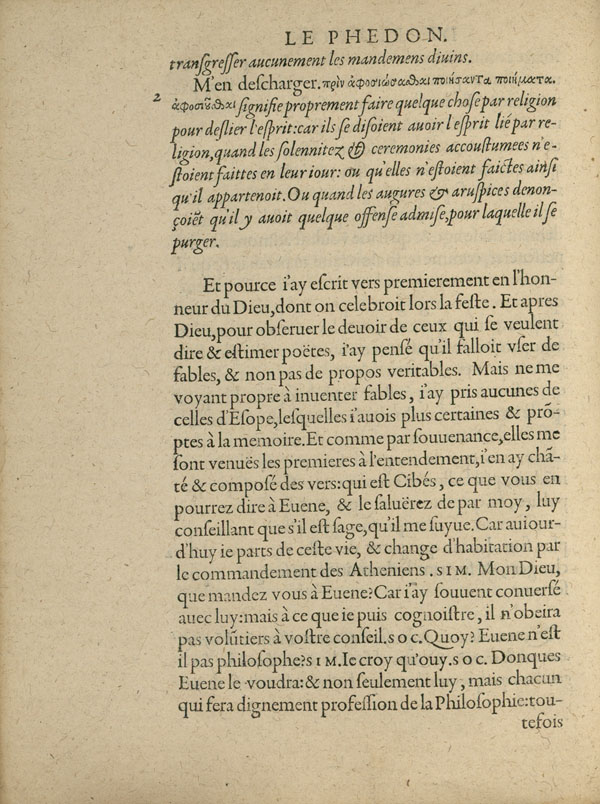 LE PHEDON.
tranſgreſſer aucunement les mandemens diuins.
M'en deſcharger. πρὶν ἀφοσιώσασθαι ποιήσαντα ποιήματα.
2 ἀφοσιοῦσθαι ſignifie proprement faire quelque choſe par religion
pour deſlier l'eſprit: car ils ſe diſoient auoir l'eſprit lié par re-
ligion, quand les ſolennitez & ceremonies accouſtumees n'e-
ſtoient faittes en leur iour: ou qu'elles n'eſtoient faictes ainſi
qu'il appartenoit. Ou quand les augures & aruſpices denon-
çoiẽt qu'il y auoit quelque offenſe admiſe, pour laquelle il ſe
purger.
Et pource i'ay eſcrit vers premierement en l'hon-
neur du Dieu, dont on celebroit lors la feſte. Et apres
Dieu, pour obſeruer le deuoir de ceux qui ſe veulent
dire & eſtimer poëtes, i'ay penſé qu'il falloit vſer de
fables, & non pas de propos veritables. Mais ne me
voyant propre à inuenter fables, i'ay pris aucunes de
celles d'Eſope, leſquelles i'auois plus certaines & prõ-
ptes à la memoire. Et comme par ſouuenance, elles me
ſont venuës les premieres à l'entendement, i'en ay chã-
té & compoſé des vers: qui eſt Cibés, ce que vous en
pourrez dire à Euene, & le ſaluërez de par moy, luy
conſeillant que s'il eſt ſage, qu'il me ſuyue. Car auiour-
d'huy ie parts de ceſte vie, & change d'habitation par
le commandement des Atheniens. SIM. Mon Dieu,
que mandez vous à Euene? Car i'ay ſouuent conuerſé
auec luy: mais à ce que ie puis cognoiſtre, il n'obeira
pas volũtiers à voſtre conſeil. SOC. Quoy? Euene n'eſt
il pas philoſophe? SIM. Ie croy qu'ouy. SOC. Donques
Euene le voudra: & non ſeulement luy, mais chacun
qui fera dignement profeſſion de la Philoſophie: tou-
tefois